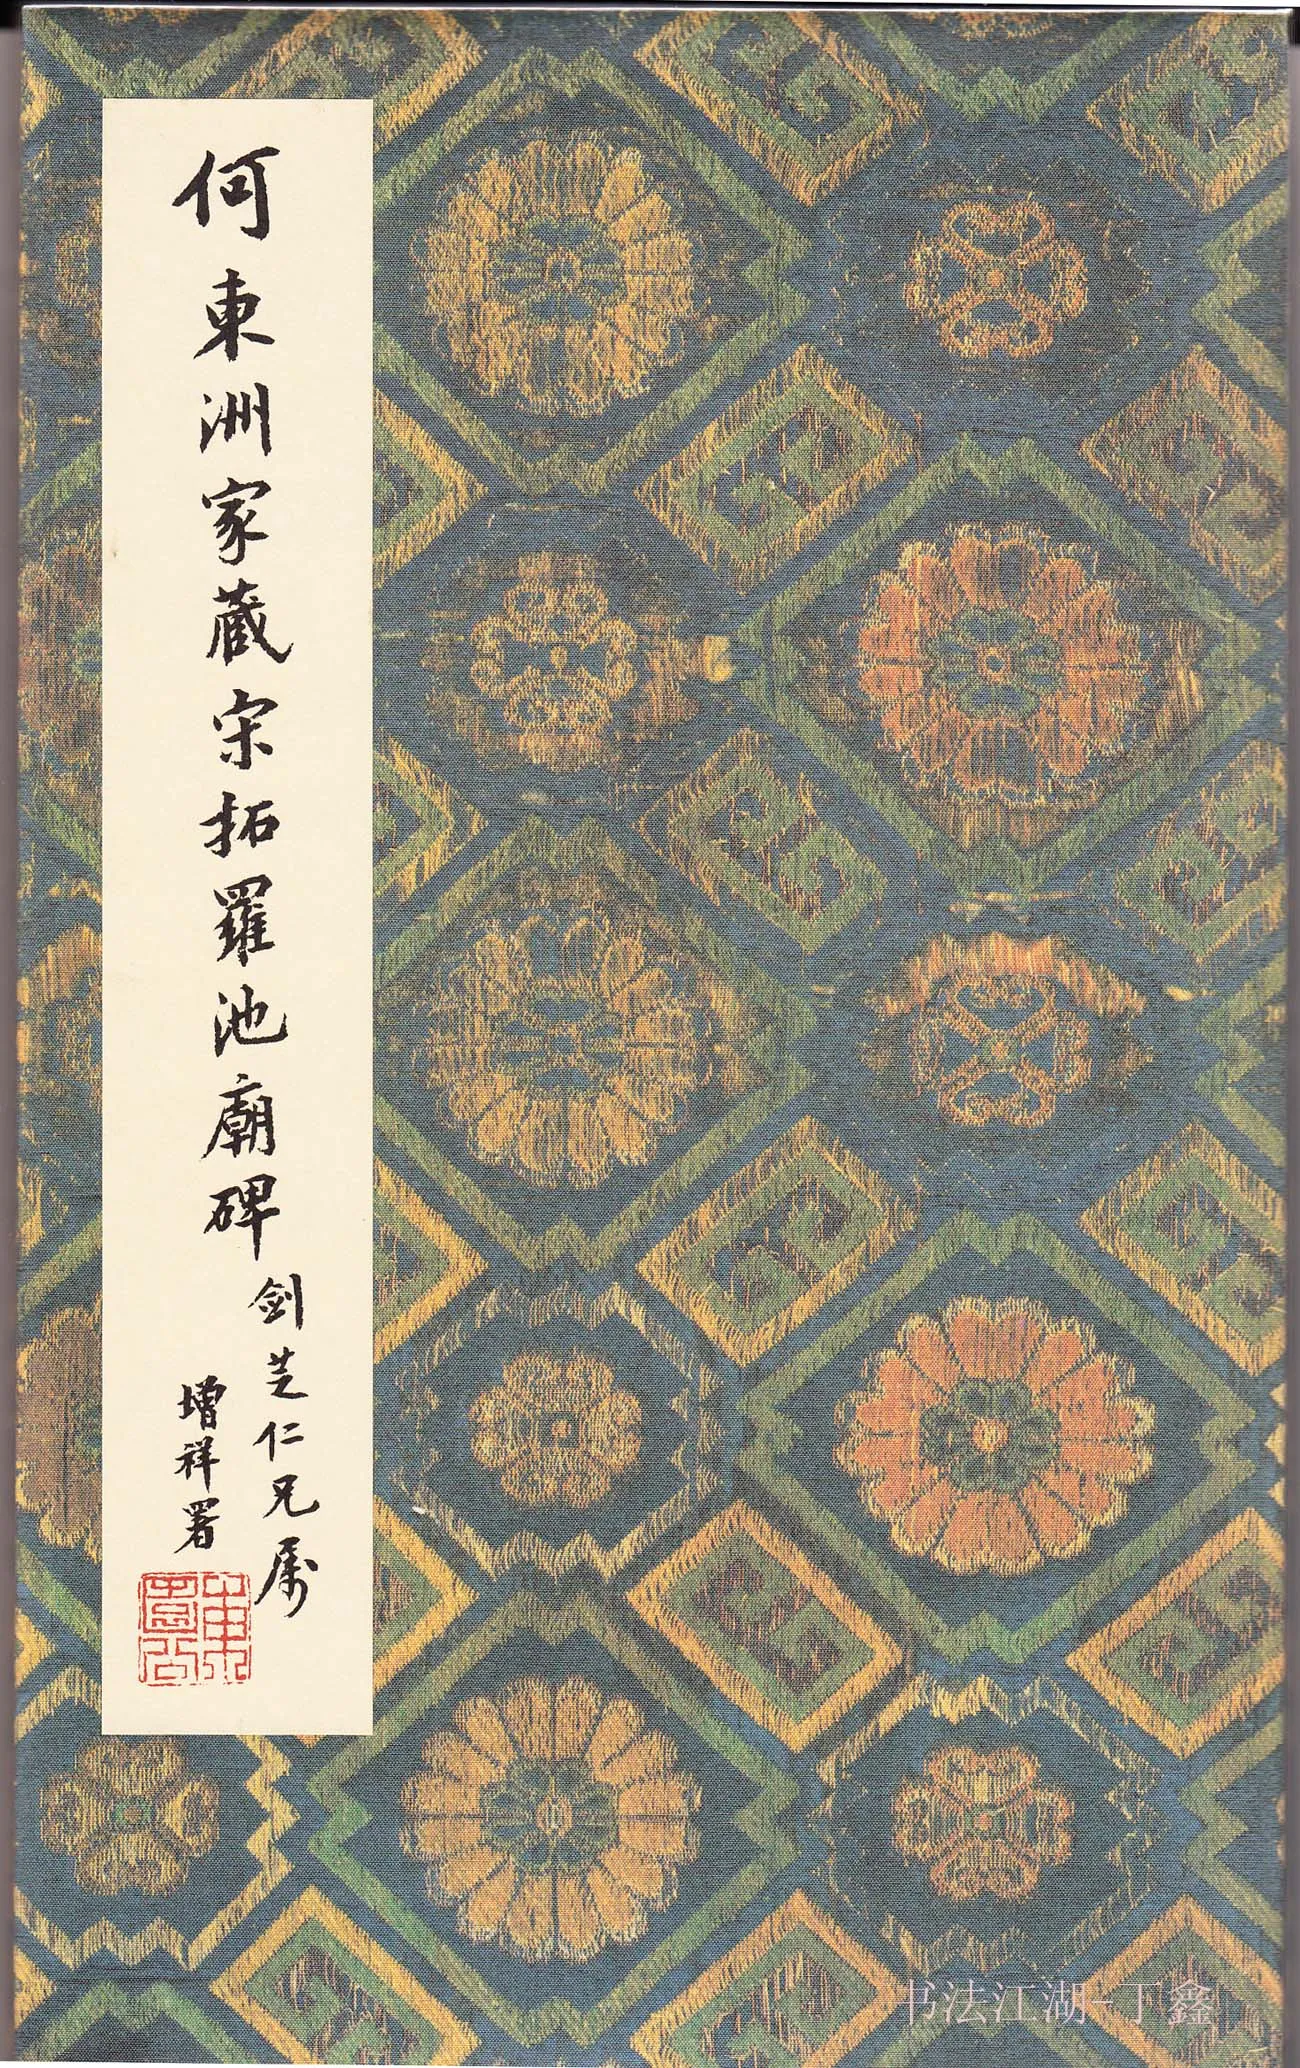 何東洲家藏宋拓羅池廟碑
劍芝仁兄属
增祥署
书法江湖-丁鑫